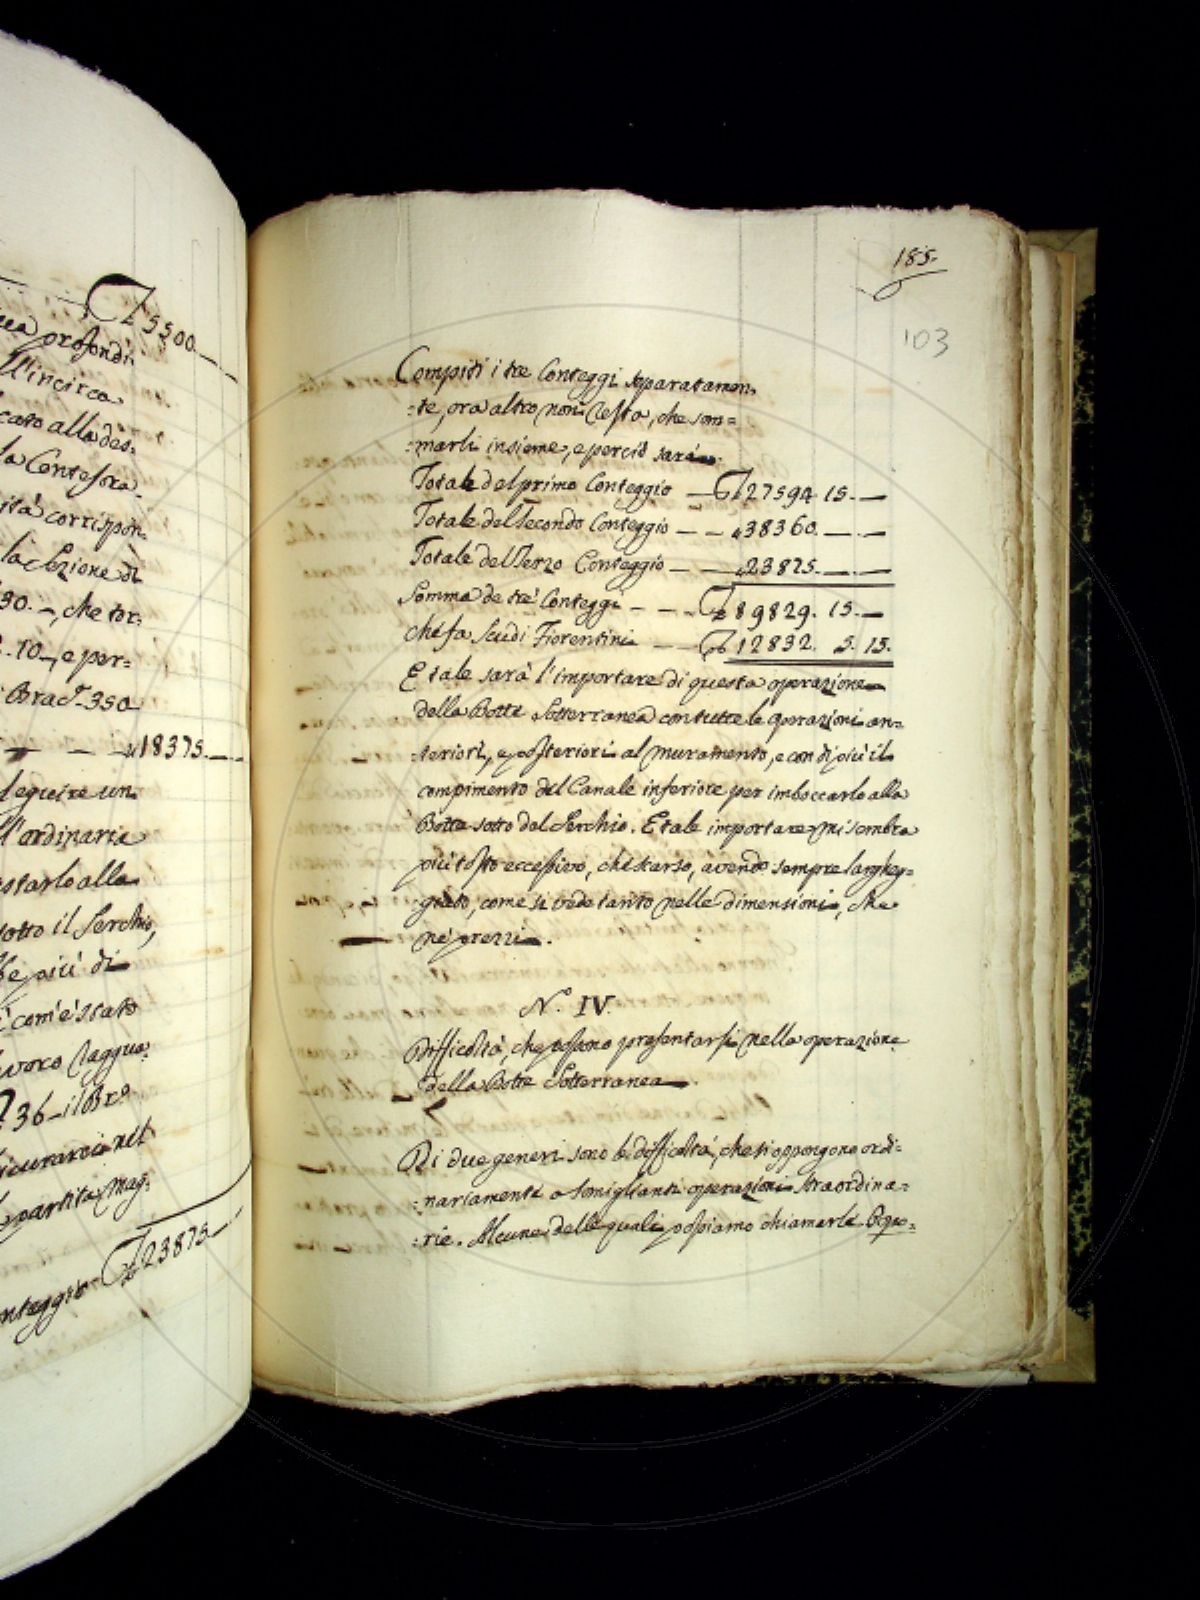 5500.
profondi
l'incirca
cato alla des-
la Contesora
ità corrispon-
la Sezione di
30. —, che tor-
. 10 —, e per-
Brac. 350
— — 18375. —
seguire un
ll'ordinaria
starlo alla
sotto il Serchio,
più di
com'è stato
lavoro raggua-
36 — il Br.
sicurarci nel
partita mag-
Conteggio 23875 —
185.
103
Compiti i tre Conteggi separatamen-
:te, ora altro non resta, che som=
:marli insieme, e perciò sarà
Totale del primo Conteggio — 27594. 15. —
Totale del Secondo Conteggio — — 38360. — . —
Totale del Terzo Conteggio — — 23875. — . —
Somma de tre Conteggi — — — 89829. 15. —
che fa Scudi Fiorentini — — 12832. 5. 15.
E tale sarà l'importare di questa operazione
della Botte Sotterranea con tutte le operazioni an-
:teriori, e posteriori al muramento, e con di più il
compimento del Canale inferiore per imboccarlo alla
Botte sotto del Serchio. E tale importare mi sembra
più tosto eccessivo, che scarso, avendo sempre largheg-
giato, come si vede tanto nelle dimensioni, che
ne' prezzi.
N.º IV.
Difficoltà, che possono presentarsi nella operazione
della Botte Sotterranea.
Di due generi sono le difficoltà, che si oppongono ordi-
:nariamente a somiglianti operazioni straordina=
:rie. Alcune delle quali possiamo chiamarle